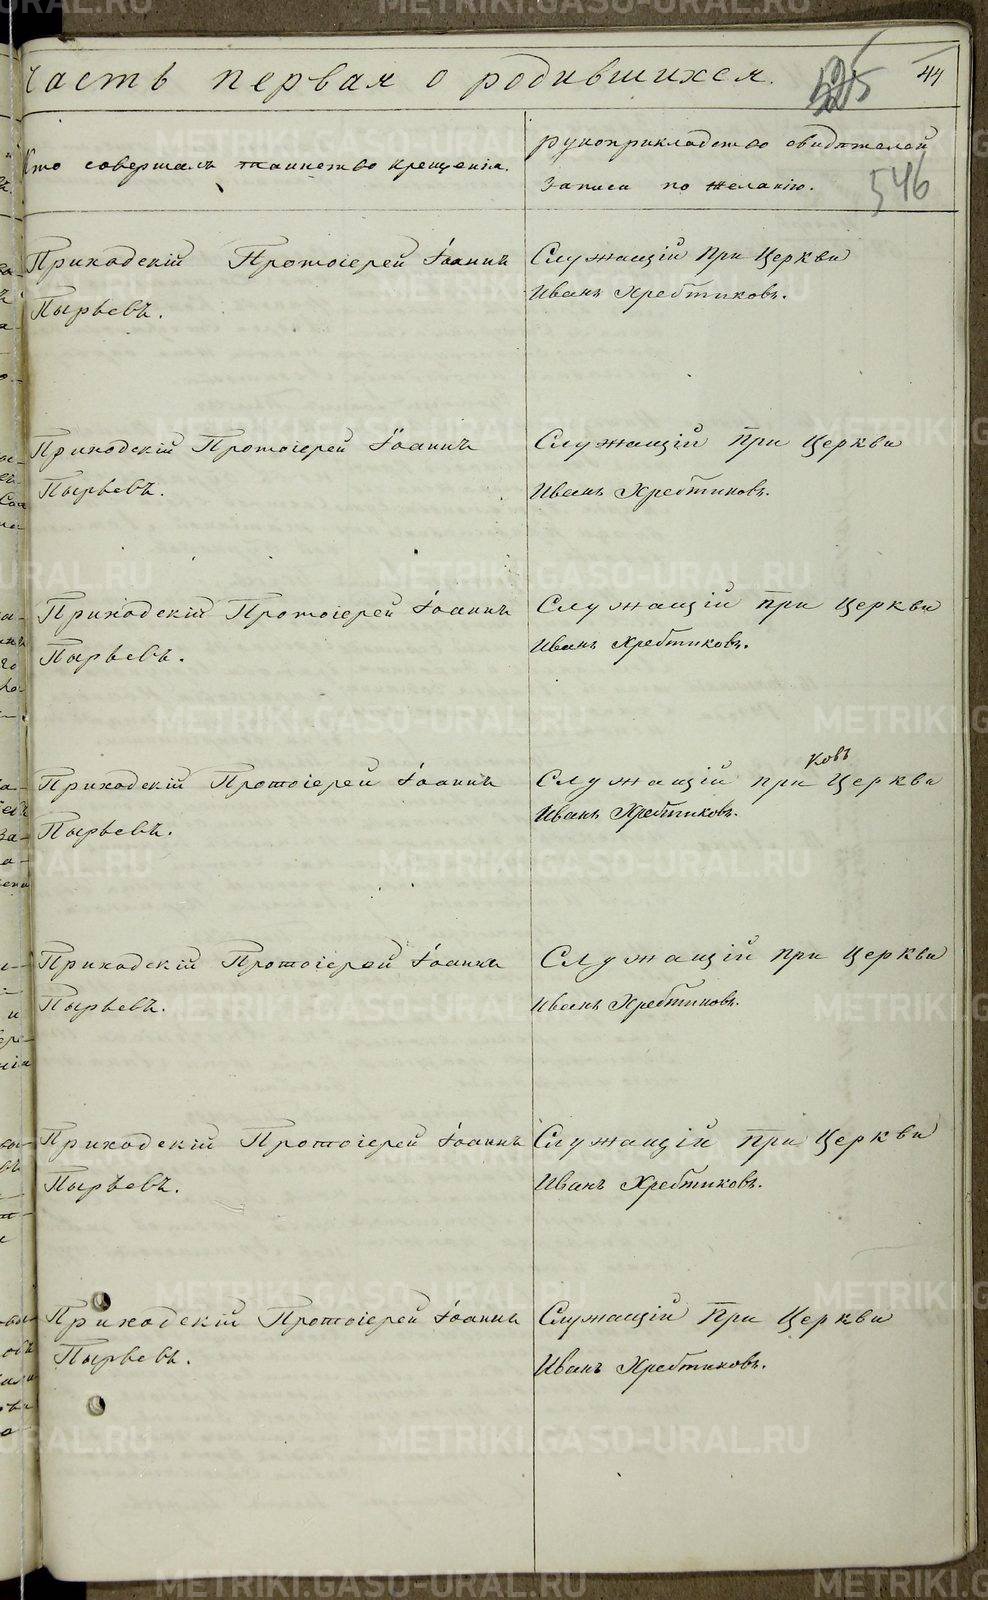 Часть первая о родившихся.
44
Кто совершалъ таинство крещенія.
рукоприкладство свидѣтелей
записи по желанію.
546
Приходскій Протоіерей Іоаннъ
Пырьевъ.
Служащій при Церкви
Иванъ Хребтиковъ.
Приходскій Протоіерей Іоаннъ
Пырьевъ.
Служащій при Церкви
Иванъ Хребтиковъ.
Приходскій Протоіерей Іоаннъ
Пырьевъ.
Служащій при Церкви
Иванъ Хребтиковъ.
Приходскій Протоіерей Іоаннъ
Пырьевъ.
ковъ
Служащій при Церкви
Иванъ Хребтиковъ.
Приходскій Протоіерей Іоаннъ
Пырьевъ.
Служащій при Церкви
Иванъ Хребтиковъ.
Приходскій Протоіерей Іоаннъ
Пырьевъ.
Служащій при Церкви
Иванъ Хребтиковъ.
Приходскій Протоіерей Іоаннъ
Пырьевъ.
Служащій При Церкви
Иванъ Хребтиковъ.
METRIKI.GASO-URAL.RU